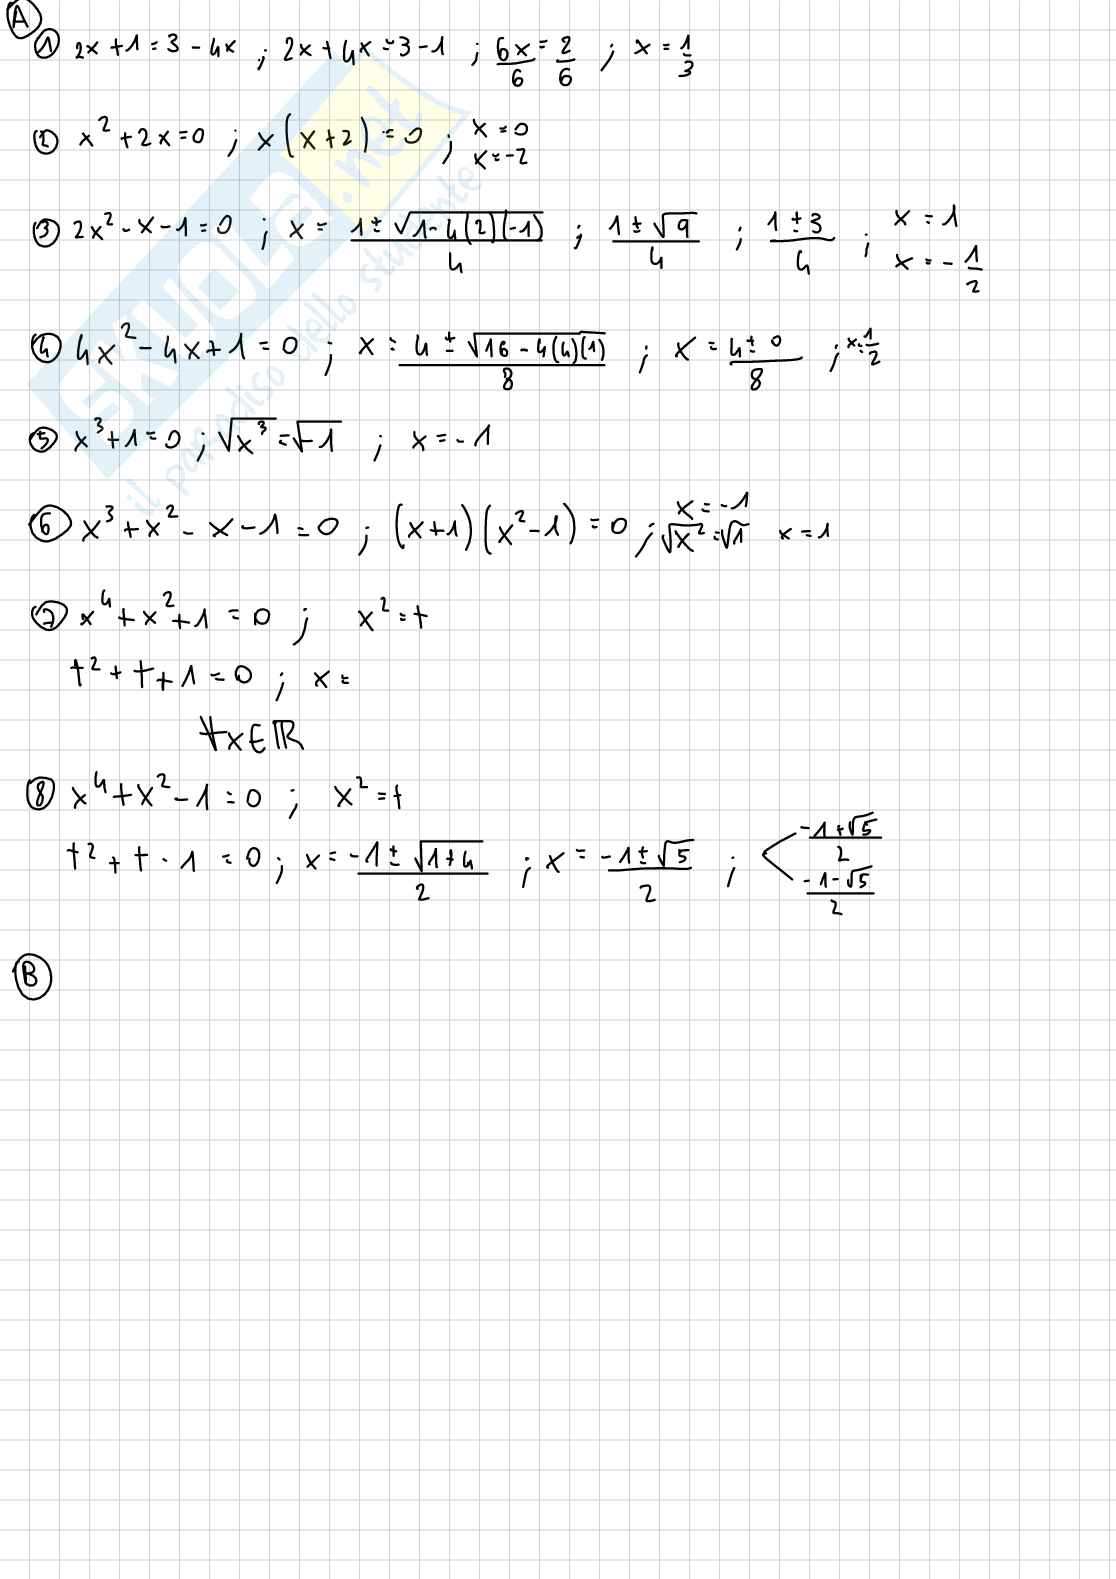 A
① 2x + 1 = 3 - 4x ; 2x + 4x = 3 - 1 ; 6x/6 = 2/6 ; x = 1/3
② x² + 2x = 0 ; x(x+2) = 0 ; x = 0 x = -2
③ 2x² - x - 1 = 0 ; x = (1 ± √(1 - 4(2)(-1)))/4 ; (1 ± √9)/4 ; (1 ± 3)/4 ; x = 1 x = -1/2
④ 4x² - 4x + 1 = 0 ; x = (4 ± √(16 - 4(4)(1)))/8 ; x = (4 ± 0)/8 ; x = 1/2
⑤ x³ + 1 = 0 ; √x³ = √-1 ; x = -1
⑥ x³ + x² - x - 1 = 0 ; (x+1)(x²-1) = 0 ; x = -1 √x² = √1 x = 1
⑦ x⁴ + x² + 1 = 0 ; x² = t
t² + t + 1 = 0 ; x =
∀x∈ℝ
⑧ x⁴ + x² - 1 = 0 ; x² = t
t² + t - 1 = 0 ; x = (-1 ± √(1+4))/2 ; x = (-1 ± √5)/2 ; < (-1+√5)/2 (-1-√5)/2
B
SKUOLA.net
il paradiso dello studente